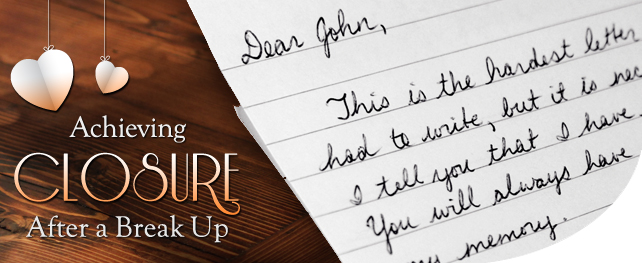 Achieving
CLOSURE
After a Break Up
Dear John,
This is the hardest letter
had to write, but it is nec
I tell you that I have
You will always have
my memory.